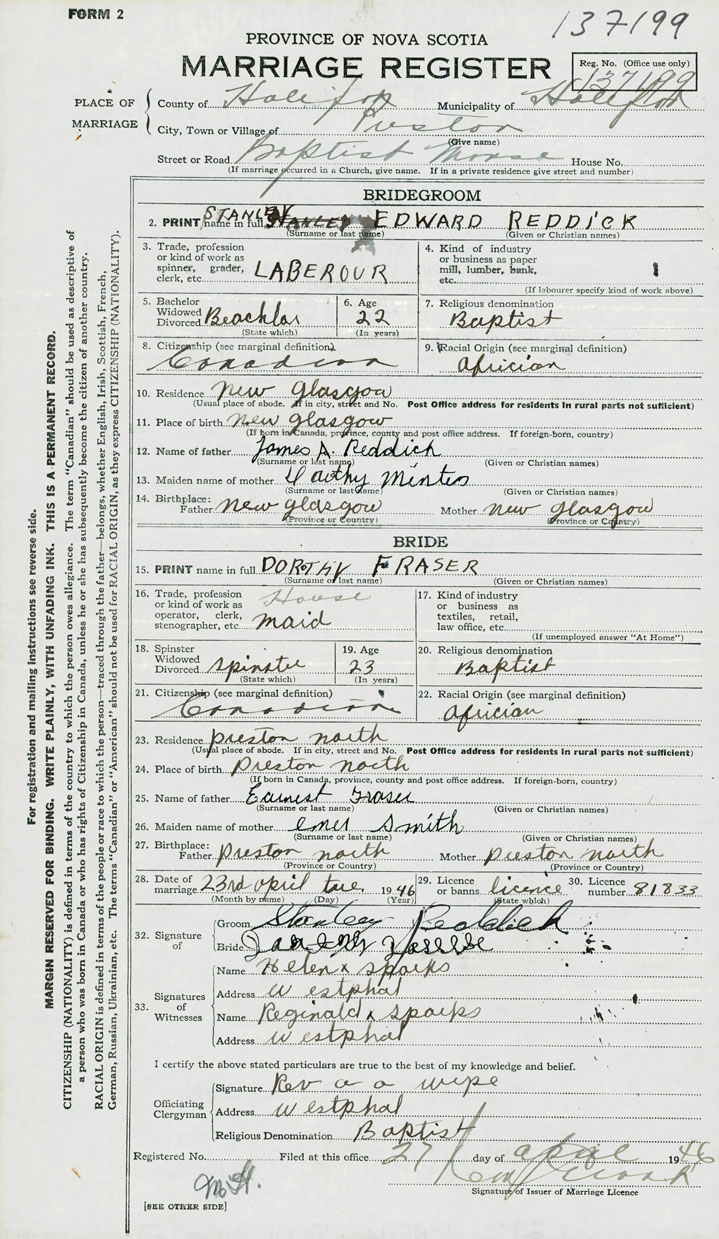 FORM 2
137199
PROVINCE OF NOVA SCOTIA
MARRIAGE REGISTER
Reg. No. (Office use only)
137199
PLACE OF MARRIAGE
County of Halifax Municipality of Halifax
City, Town or Village of Preston
(Give name)
Street or Road Baptist House No.
(If marriage occurred in a Church, give name. If in a private residence give street and number)
BRIDEGROOM
2. PRINT name in full STANLEY EDWARD REDDICK
(Surname or last name) (Given or Christian names)
3. Trade, profession or kind of work as spinner, grader, clerk, etc. LABEROUR
4. Kind of industry or business as paper mill, lumber, bank, etc.
(If labourer specify kind of work above)
5. Bachelor Widowed Divorced Beachlar
(State which)
6. Age 22
(In years)
7. Religious denomination
Baptist
8. Citizenship (see marginal definition)
Canadian
9. Racial Origin (see marginal definition)
Africian
10. Residence New glasgow
(Usual place of abode. If in city, street and No. Post Office address for residents in rural parts not sufficient)
11. Place of birth New glasgow
(If born in Canada, province, county and post office address. If foreign-born, country)
12. Name of father James A. Reddick
(Surname or last name) (Given or Christian names)
13. Maiden name of mother Mintis
(Surname or last name) (Given or Christian names)
14. Birthplace: Father new glasgow Mother new glasgow
(Province or Country) (Province or Country)
BRIDE
15. PRINT name in full DORTHY FRASER
(Surname or last name) (Given or Christian names)
16. Trade, profession or kind of work as operator, clerk, stenographer, etc. House maid
17. Kind of industry or business as textiles, retail, law office, etc.
(If unemployed answer "At Home")
18. Spinster Widowed Divorced Spinster
(State which)
19. Age 23
(In years)
20. Religious denomination
Baptist
21. Citizenship (see marginal definition)
Canadian
22. Racial Origin (see marginal definition)
Africian
23. Residence Preston north
(Usual place of abode. If in city, street and No. Post Office address for residents in rural parts not sufficient)
24. Place of birth Preston north
(If born in Canada, province, county and post office address. If foreign-born, country)
25. Name of father Earnest Fraser
(Surname or last name) (Given or Christian names)
26. Maiden name of mother Smith
(Surname or last name) (Given or Christian names)
27. Birthplace: Father Preston north Mother Preston north
(Province or Country) (Province or Country)
28. Date of marriage 23rd april tue 1946
(Month by name) (Day) (Year)
29. Licence or banns licence
(State which)
30. Licence number 81833
32. Signature of
Groom Stanley Reddick
Bride
33. Signatures of Witnesses
Name Helen x Sparks
Address Westphal
Name Reginald x Sparks
Address Westphal
I certify the above stated particulars are true to the best of my knowledge and belief.
Officiating Clergyman
Signature Rev a a wipe
Address Westphal
Religious Denomination Baptist
Registered No. Filed at this office 27 day of april 1946
Signature of Issuer of Marriage Licence
[SEE OTHER SIDE]
For registration and mailing instructions see reverse side.
MARGIN RESERVED FOR BINDING. WRITE PLAINLY, WITH UNFADING INK. THIS IS A PERMANENT RECORD.
CITIZENSHIP (NATIONALITY) is defined in terms of the country to which the person owes allegiance. The term "Canadian" should be used as descriptive of
a person who was born in Canada or who has rights of Citizenship in Canada, unless he or she has subsequently become the citizen of another country.
RACIAL ORIGIN is defined in terms of the people or race to which the person—traced through the father—belongs, whether English, Irish, Scottish, French,
German, Russian, Ukrainian, etc. The terms "Canadian" or "American" should not be used for RACIAL ORIGIN, as they express CITIZENSHIP (NATIONALITY).